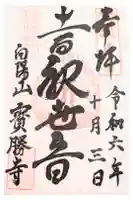 奉拝
令和六年
十月三日
十一面観世音
向陽山
實勝寺